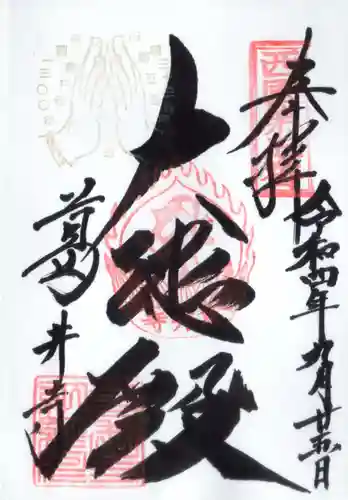 奉拝
令和四年九月廿五日
大悲殿
葛井寺